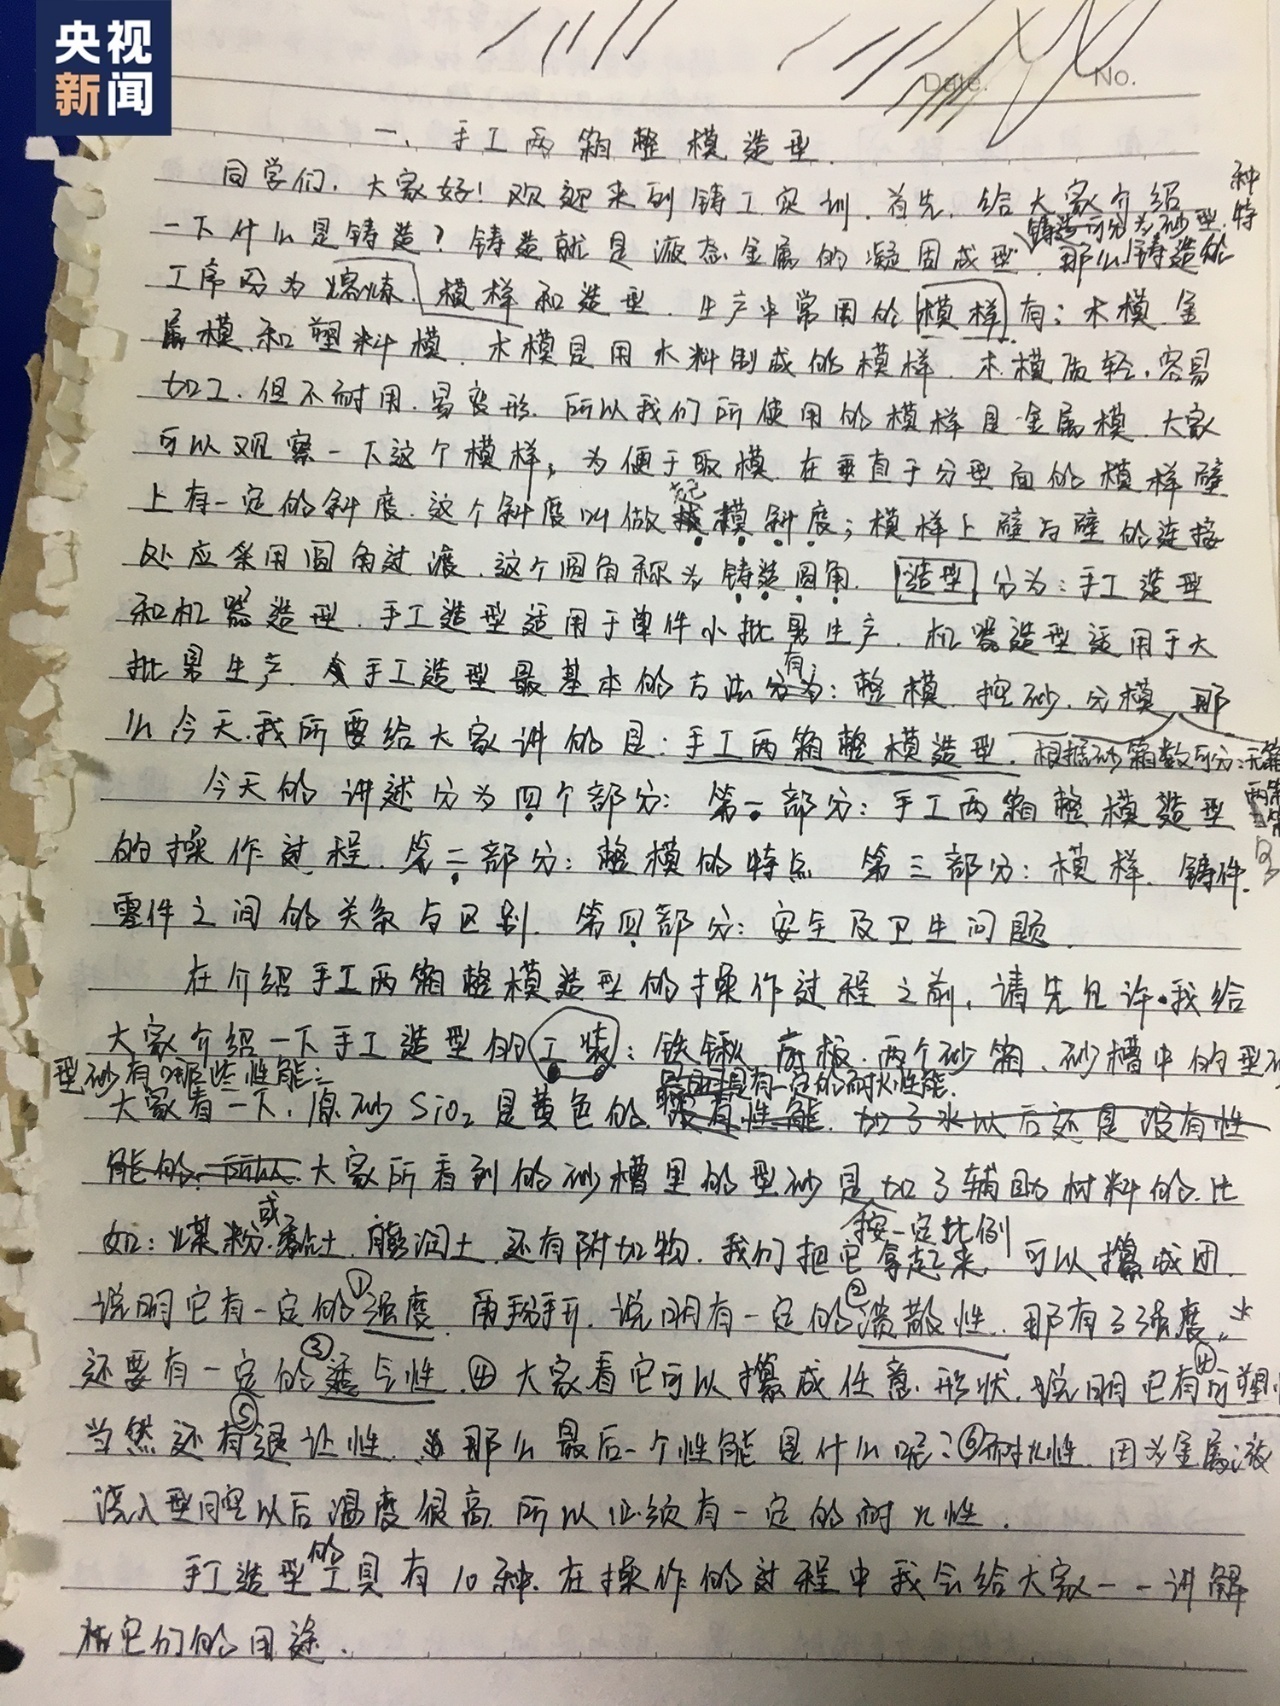 央视
新闻
Date.
No.
一、手工两箱整模造型.
同学们，大家好！欢迎来到铸工实训．首先，给大家介绍
种
特
铸造可分为：砂型
一下什么是铸造？铸造就是液态金属的凝固成型，那么铸造的
工序分为熔炼，模样和造型．生产中常用的模样有：木模，金
属模，和塑料模．木模是用木料制成的模样．木模质轻，容易
加工，但不耐用，易变形．所以我们所使用的模样是金属模．大家
可以观察一下这个模样，为便于取模，在垂直于分型面的模样壁
起
上有一定的斜度．这个斜度叫做模斜度；模样上壁与壁的连接
处应采用圆角过渡．这个圆角称为铸造圆角．造型分为：手工造型
和机器造型．手工造型适用于单件小批量生产．机器造型适用于大
有：
批量生产．手工造型最基本的方法分为：整模，挖砂，分模，那
么今天我所要给大家讲的是：手工两箱整模造型．根据砂箱数可分：无箱
今天的讲述分为四个部分：第一部分：手工两箱整模造型
的操作过程．第二部分：整模的特点 第三部分：模样，铸件，
零件之间的关系与区别．第四部分：安全及卫生问题．
在介绍手工两箱整模造型的操作过程之前，请先允许我给
大家介绍一下手工造型的工装：铁锹，底板，两个砂箱，砂槽中的型砂
型砂有哪些性能：
具有一定的耐火性能．
大家看一下，原砂SiO₂是黄色的．没有性能．加了水以后还是没有性
能的．所以大家所看到的砂槽里的型砂是加了辅助材料的．比
或
按一定比例
如：煤粉，黏土，膨润土，还有附加物．我们把它拿起来，可以攥成团．
说明它有一定的①强度．用手掰开，说明有一定的②溃散性．那有了强度，
还要有一定的③透气性．④大家看它可以攥成任意形状，说明它有④可塑性
当然还有⑤退让性．那么最后一个性能是什么呢？⑥耐火性．因为金属液
浇入型腔以后温度很高，所以必须有一定的耐火性．
的
手工造型工具有10种．在操作的过程中我会给大家一一讲解
它们的用途．